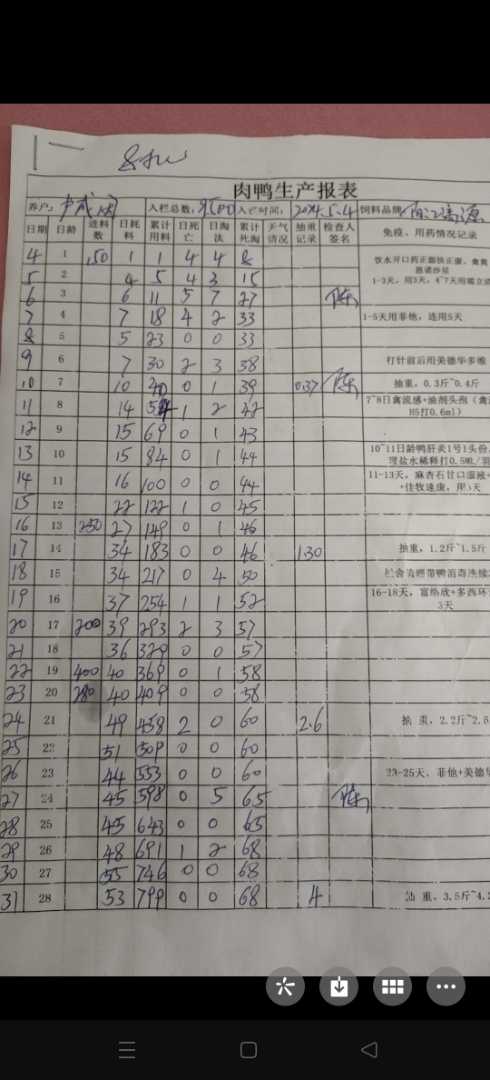 肉鸭生产报表
养户: 入栏总数: 9500 入亡时间: 2024.5.4 饲料品牌
日期 日龄 进料数 日耗料 累计用料 日死亡 日淘汰 累计死淘 天气情况 抽重记录 检查人签名 免疫、用药情况记录
4 1 150 1 1 4 4 8
5 2 4 5 4 3 15 1-3天,
6 3 6 11 5 7 27 陈
7 4 7 18 4 2 33 1-5天用菲他,连用5天
8 5 5 23 0 0 33
9 6 7 30 2 3 38 打针前后用美德华多维
10 7 10 40 0 1 39 0.37 陈 抽重,0.3斤~0.4斤
11 8 14 54 1 2 42 7~8日禽流感+油剂头孢(禽 H5打0.6ml)
12 9 15 69 0 1 43
13 10 15 84 0 1 44 10~11日龄鸭肝炎1号1头份
14 11 16 100 0 0 44 11-13天,麻杏石甘口溜液+
15 12 22 122 1 0 45
16 13 250 27 149 0 1 46
17 14 34 183 0 0 46 1.30 抽重,1.2斤~1.5斤
18 15 34 217 0 4 50
19 16 37 254 1 1 52 16-18天,富络欣+多西环 3天
20 17 200 39 293 2 3 57
21 18 36 329 0 0 57
22 19 400 40 369 0 1 58
23 20 280 40 409 0 0 58
24 21 49 458 2 0 60 2.6 抽重,2.2斤~2.6
25 22 51 509 0 0 60
26 23 44 553 0 0 60 23-25天,菲他+美德华
27 24 45 598 0 5 65 陈
28 25 45 643 0 0 65
29 26 48 691 1 2 68
30 27 55 746 0 0 68
31 28 53 799 0 0 68 4 抽重,3.5斤~4.